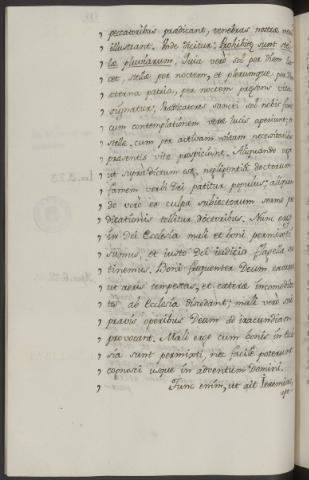 peccatoribus prædicant, tenebras noctis
illustrant. Unde dicitur: Prohibitæ sunt
læ pluviarum. Quia vero sol per diem
cet, stellæ per noctem, et plerumque per
æterna patria, per noctem præsens vita
signatur; Prædicatores sancti sol nobis
cum contemplationem veræ lucis aperiunt; et
stellæ, cum per activam vitam necessitatibus
præsentis vitæ prospiciunt. Aliquando ergo
ut supra dictum est, negligentia doctorum
famem verbi Dei patitur populus; aliquan
do vero ex culpa subiectorum sermo præ
dicationis tollitur doctoribus. Nunc ergo
in Dei Ecclesia mali et boni permixti
sumus, et iusto Dei iudicio flagella
tinemus. Boni frequenter Deum exorant
ut aeris tempestas, et cætera incommodita
tes ab Ecclesia discedant; mali vero suis
pravis operibus Deum ad iracundiam
provocant. Mali ergo cum bonis in Eccle
sia sunt permixti, nec facile poterunt
cognosci usque in adventum Domini.
Tunc enim, ut ait Jeremias,